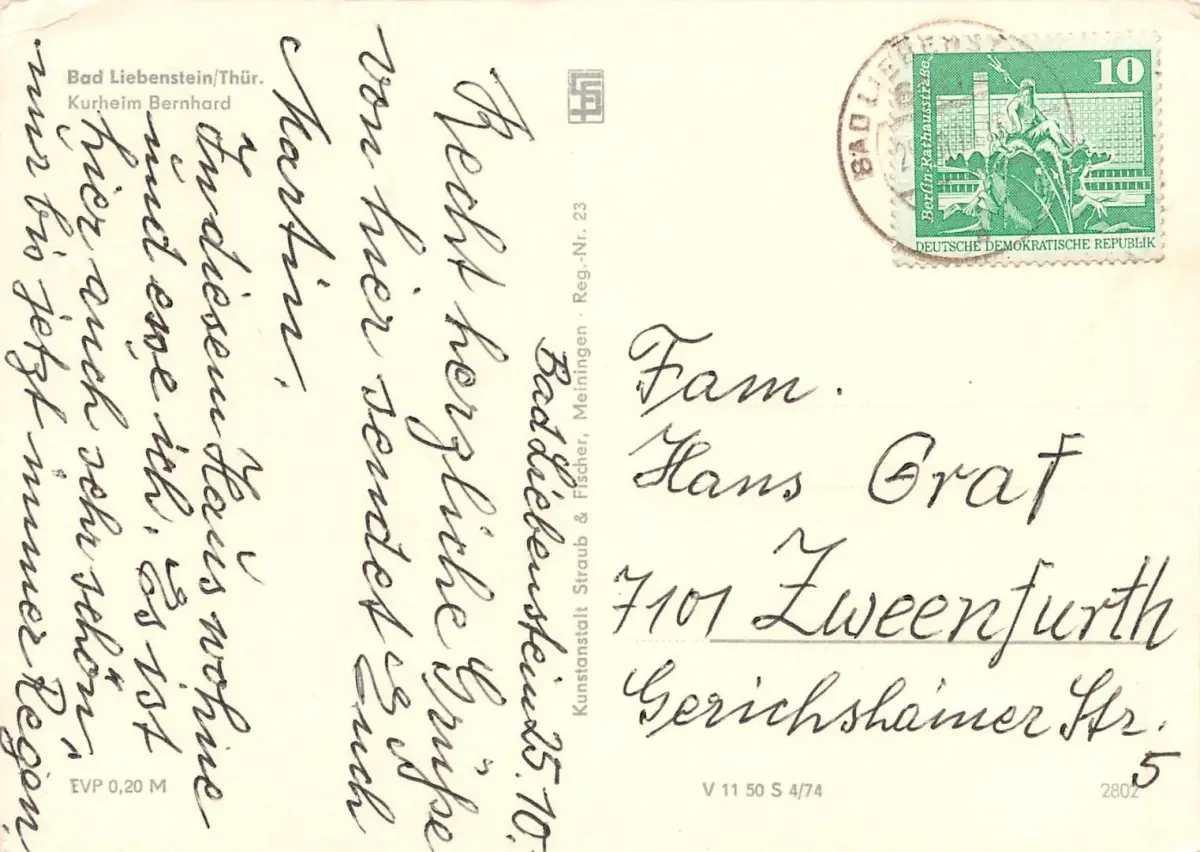 Bad Liebenstein/Thür.
Kurheim Bernhard
Bad Liebenstein 25.10.
Recht herzliche Grüße
von hier sendet Euch
Martin.
In diesem Haus wohne
und esse ich. Es ist
hier auch sehr schön,
nur bis jetzt immer Regen.
EVP 0,20 M
Kunstanstalt Straub & Fischer, Meiningen · Reg.-Nr. 23
BAD LIEBENST
10
Berlin-Rathausstraße
DEUTSCHE DEMOKRATISCHE REPUBLIK
Fam.
Hans Graf
7101 Zweenfurth
Gerichshainer Str.
5
V 11 50 S 4/74
2802